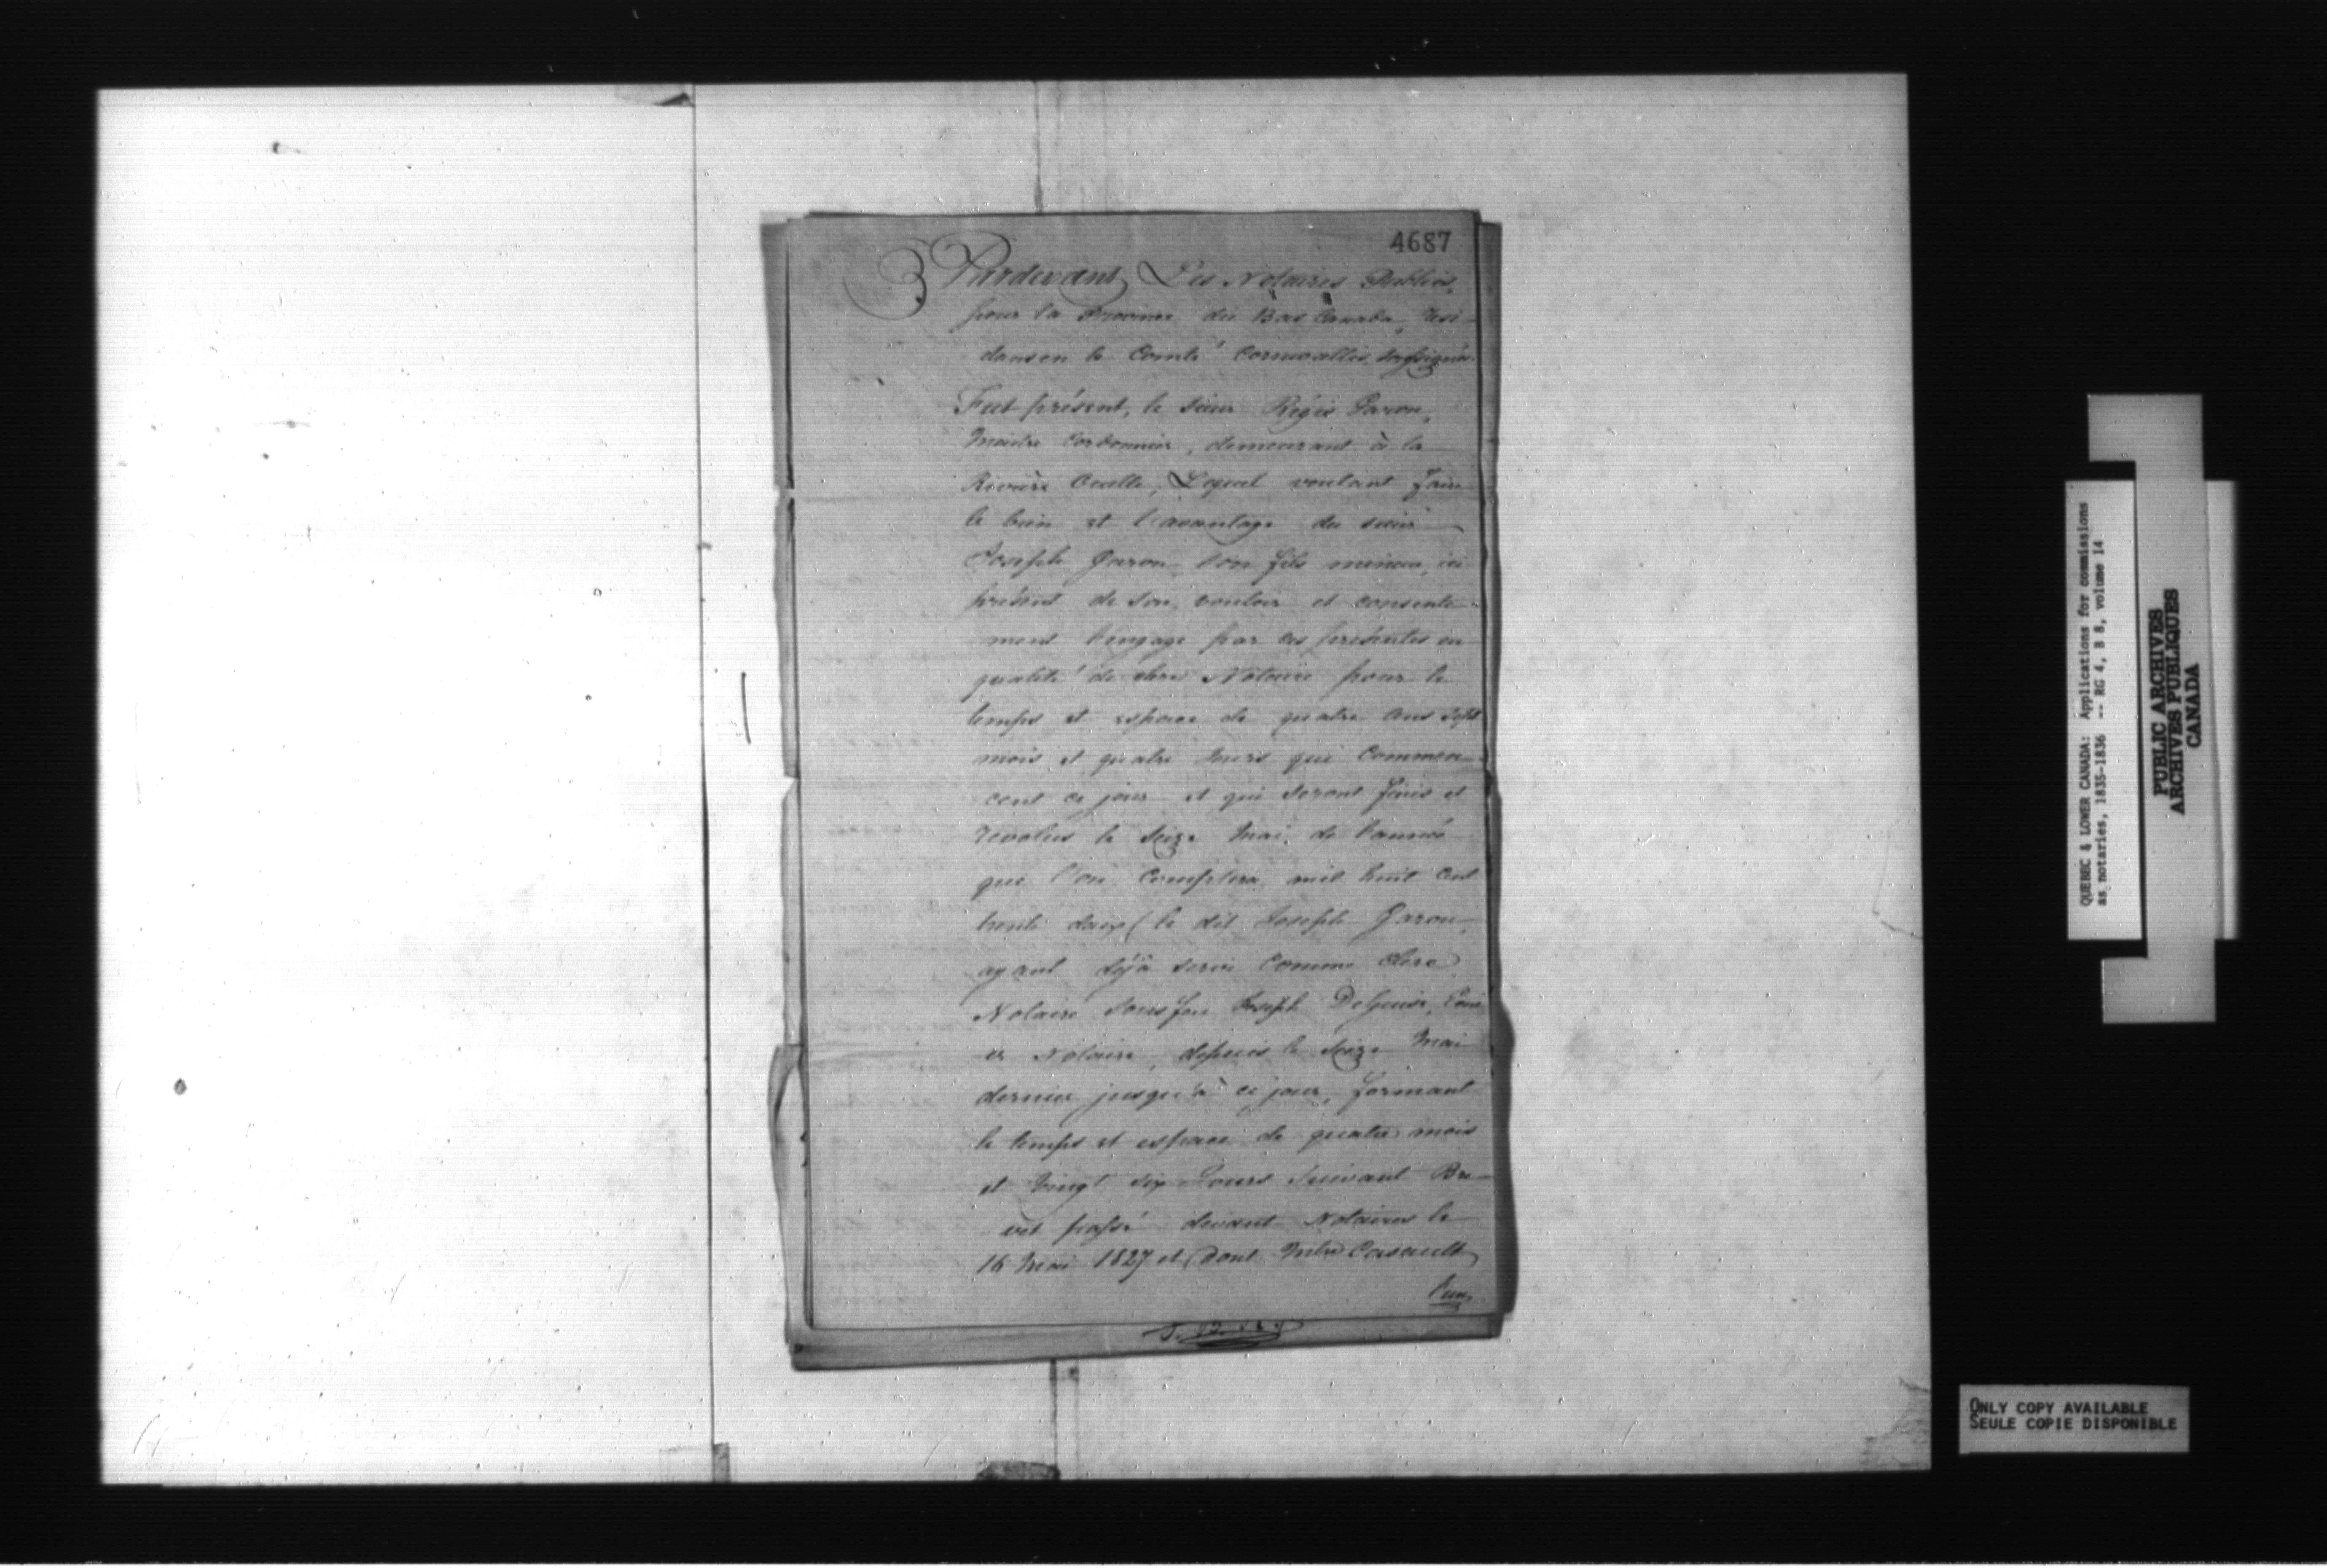 4687
Pardevant Les Notaires Publics,
pour la Province du Bas Canada, rési-
dans en le Comté Cornwallis, soussignés.
Fut présent, le sieur Régis Garon,
Maître Cordonnier, demeurant à la
Rivière Ouelle, Lequel voulant faire
le bien et l'avantage du sieur
Joseph Garon son fils mineur, ici
présent de son vouloir et consente-
ment l'engage par ces présentes en
qualité de clerc Notaire pour le
temps et espace de quatre ans sept
mois et quatre jours qui commen-
cent ce jour et qui seront finis et
révolus le seize Mai de l'année
que l'on comptera mil huit cent
trente deux (le dit Joseph Garon,
ayant déjà servi comme clerc
Notaire sous feu Joseph DeGuise, Ecui-
er Notaire, depuis le seize Mai
dernier jusqu'à ce jour, formant
le temps et espace de quatre mois
et vingt six Jours suivant Bre-
vet passé devant Notaires le
16 Mai 1827 et dont Mtre Casault
l'un,
QUEBEC & LOWER CANADA: Applications for commissions
as notaries, 1835-1836 -- RG 4, B 8, volume 14
PUBLIC ARCHIVES
ARCHIVES PUBLIQUES
CANADA
ONLY COPY AVAILABLE
SEULE COPIE DISPONIBLE